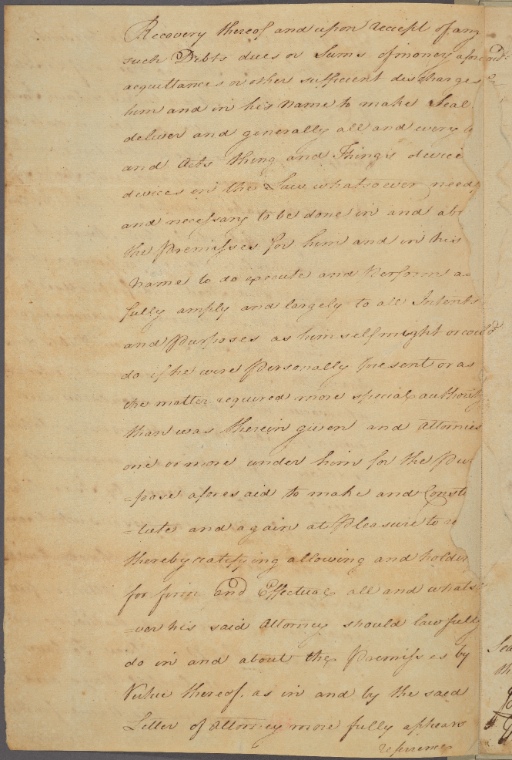 Recovery thereof and upon receipt of any
such Debts dues or Sums of money afore
acquittances or other sufficient discharges
him and in his name to make Seal
deliver and generally all and every
and Acts thing and Things device
devices in the Law whatsoever need
and necessary to be done in and ab
the Premisses for him and in his
name to do execute and Perform as
fully amply and largely to all Intents
and Purposes as himself might or could
do if he were Personally present or as
the matter required more special authority
than was therein given and Attornies
one or more under him for the Pur
=pose aforesaid to make and Consti
=tute and again at Pleasure to
thereby ratifying allowing and holdin
for firm and Effectual all and whats
=ver his said Attorney should lawfully
do in and about the Premisses by
Virtue thereof, as in and by the said
Letter of Attorney more fully appears
reference